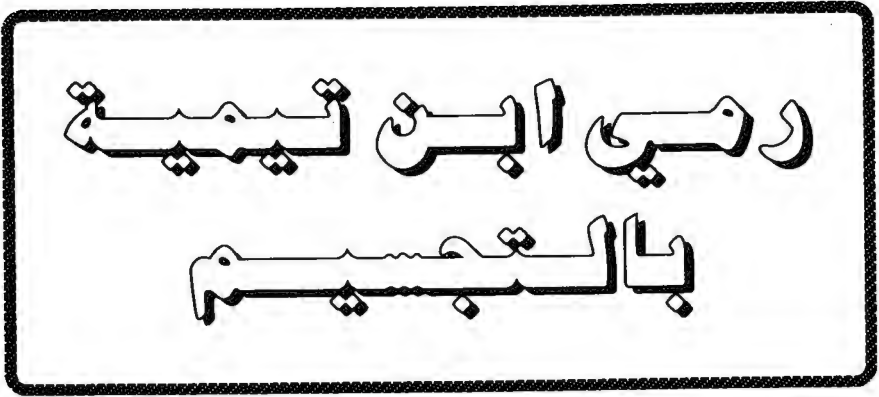 رمي ابن تيمية
بالتجسيم